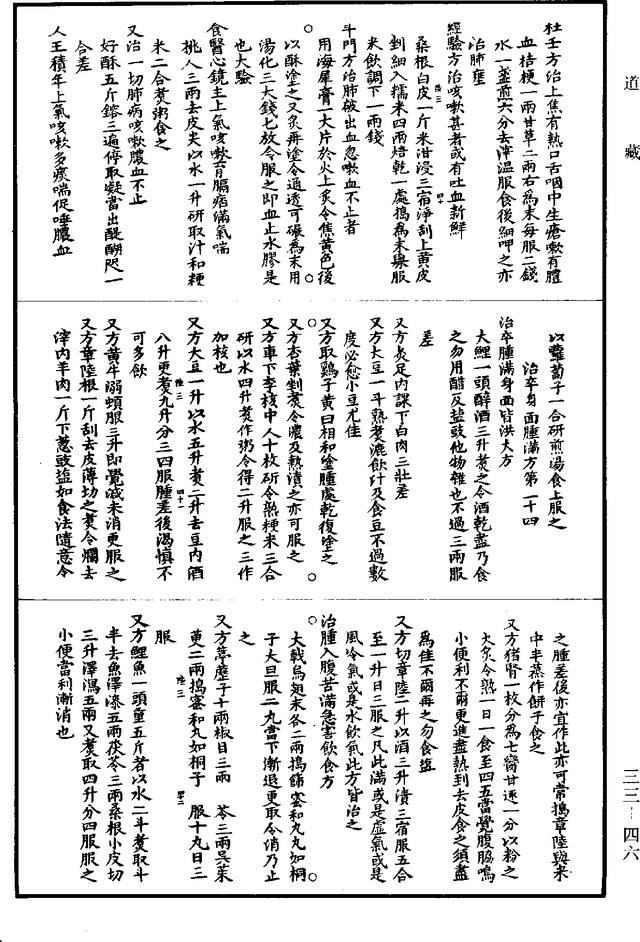 道藏
杜壬方治上焦有熱口舌咽中生瘡嗽有膿
血桔梗一兩甘草二兩右為末每服二錢
水一盞煎六分去滓溫服食後細呷之亦
治肺癰
經驗方治咳嗽甚者或有吐血新鮮
桑根白皮一斤米泔浸三宿淨刮上黃皮
剉細入糯米四兩焙乾一處搗為末每服
米飲調下一兩錢
斗門方治肺破出血忽嗽血不止者
用海犀膏一大片於火上炙令焦黃色後
以酥塗之又炙再塗令通透可碾為末用
湯化三大錢匕放令服之即血止水膠是
也大驗
食醫心鏡主上氣咳嗽胷膈痞滿氣喘
桃人三兩去皮尖以水一升研取汁和粳
米二合煮粥食之
又治一切肺病咳嗽膿血不止
好酥五斤鎔三遍停取凝當出醍醐嚥一
合差
人王積年上氣咳嗽多痰喘促唾膿血
以蘿蔔子一合研煎湯食上服之
治卒身面腫滿方第二十四
治卒腫滿身面皆洪大方
大鯉一頭醇酒三升煮之令酒乾盡乃食
之勿用醋及鹽豉他物雜也不過三兩服
差
又方灸足內踝下白肉三壯差
又方大豆一斗熟煮漉飲汁及食豆不過數
度必愈小豆尤佳
又方取鷄子黃白相和塗腫處乾復塗之
又方杏葉剉煮令濃及熱漬之亦可服之
又方車下李核中人十枚研令熟粳米三合
研以水四升煮作粥令得二升服之三作
加核也
又方大豆一升以水五升煮二升去豆內酒
八升更煮九升分三四服腫差後渴慎不
可多飲
又方黃牛溺頓服三升即覺減未消更服之
又方章陸根一斤刮去皮薄切之煮令爛去
滓內羊肉一斤下蔥豉鹽如食法隨意令
之腫差後亦宜作此亦可常搗章陸與米
中半蒸作餅子食之
又方猪腎一枚分為七臠甘遂一分以粉之
火炙令熟一日一食至四五當覺腹脇鳴
小便利不爾更進盡熟剝去皮食之須盡
為佳不爾再之勿食鹽
又方切章陸一升以酒三升漬三宿服五合
至一升日三服之凡此滿或是虛氣或是
風冷氣或是水飲氣此方皆治之
治腫入腹苦滿急害飲食方
大戟烏翅末各二兩搗篩蜜和丸丸如桐
子大旦服二丸當下漸退更取令消乃止
之
又方葶藶子十兩椒目三兩　苓三兩吳茱
萸二兩搗蜜和丸如桐子　服十丸日三
服
又方鯉魚一頭重五斤者以水二斗煮取斗
半去魚澤漆五兩茯苓三兩桑根小皮切
三升澤瀉五兩又煮取四升分四服服之
小便當利漸消也
三三—四六